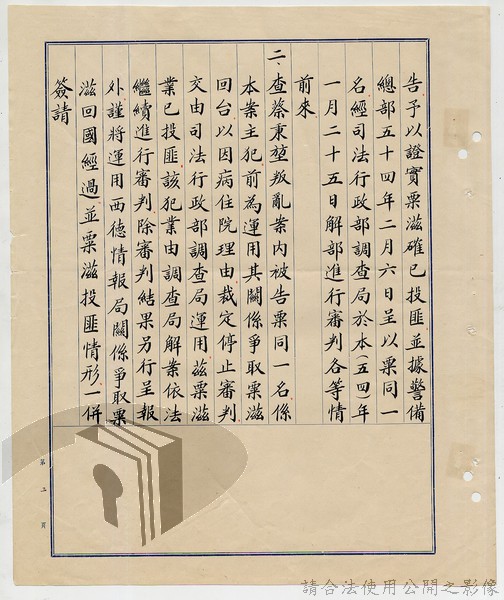 告予以證實粟滋確已投匪並據警備
總部五十四年二月六日呈以粟同一
名經司法行政部調查局於本(五四)年
一月二十五日解部進行審判各等情
前來
二、查蔡秉堃叛亂案內被告粟同一名係
本案主犯前為運用其關係爭取粟滋
回台以因病住院理由裁定停止審判
交由司法行政部調查局運用茲粟滋
業已投匪該犯業由調查局解案依法
繼續進行審判除審判結果另行呈報
外謹將運用西德情報局關係爭取粟
滋回國經過並粟滋投匪情形一併
簽請
第 二 頁
請合法使用公開之影像